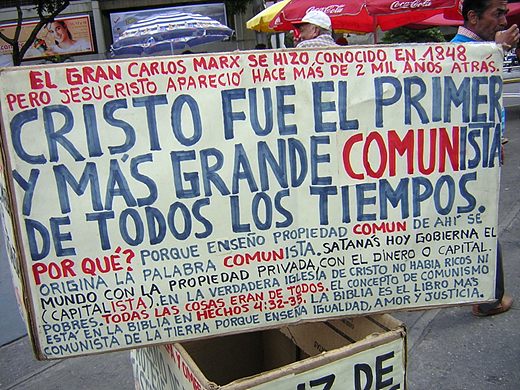 EL GRAN CARLOS MARX SE HIZO CONOCIDO EN 1848
PERO JESUCRISTO APARECIÓ HACE MAS DE 2 MIL AÑOS ATRAS.
CRISTO FUE EL PRIMER
Y MÁS GRANDE COMUNISTA
DE TODOS LOS TIEMPOS.
POR QUÉ? PORQUE ENSEÑO PROPIEDAD COMUN DE AHÍ SE
ORIGINA LA PALABRA COMUNISTA. SATANÁS HOY GOBIERNA EL
MUNDO CON LA PROPIEDAD PRIVADA, CON EL DINERO O CAPITAL.
(CAPITALISTA). EN LA VERDADERA IGLESIA DE CRISTO NO HABIA RICOS NI
POBRES. TODAS LAS COSAS ERAN DE TODOS. EL CONCEPTO DE COMUNISMO
ESTÁ EN LA BIBLIA EN HECHOS 4:32-35. LA BIBLIA ES EL LIBRO MÁS
COMUNISTA DE LA TIERRA PORQUE ENSEÑA IGUALDAD, AMOR Y JUSTICIA.
Coca-Cola
Coca-Cola
DE